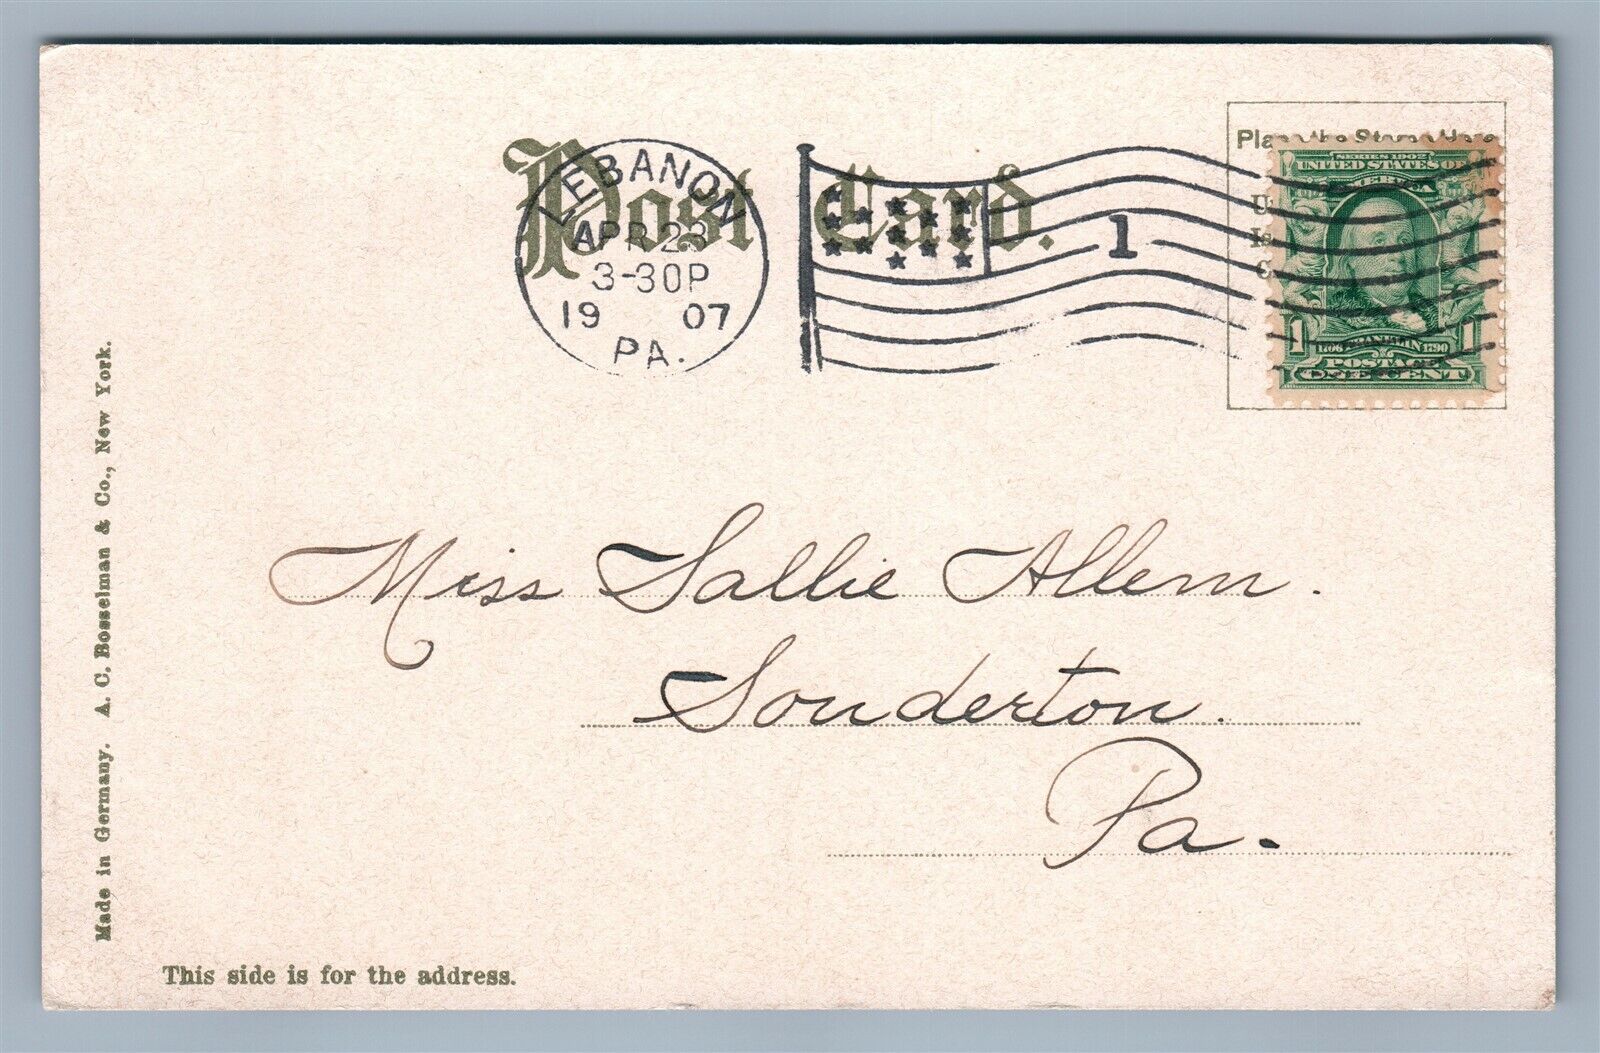 Post Card.
LEBANON
APR 23
3-30P
19 07
PA.
1
SERIES 1902
UNITED STATES OF
AMERICA
1706 FRANKLIN 1790
1 1
POSTAGE
ONE CENT
Miss Sallie Allem.
Souderton.
Pa.
Made in Germany. A. C. Bosselman & Co., New York.
This side is for the address.